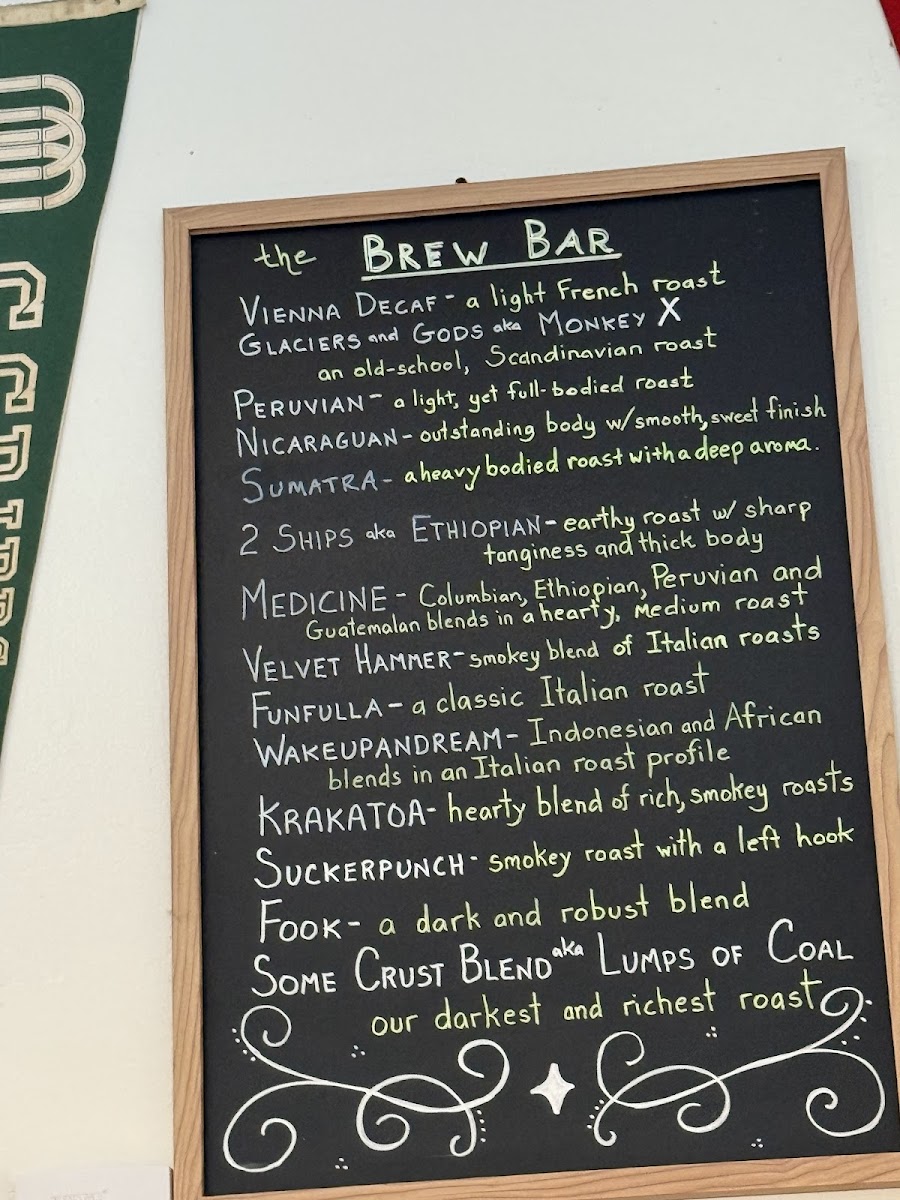 the BREW BAR
VIENNA DECAF - a light French roast
GLACIERS and GODS aka MONKEY X
an old-school, Scandinavian roast
PERUVIAN - a light, yet full-bodied roast
NICARAGUAN - outstanding body w/ smooth, sweet finish
SUMATRA - a heavy bodied roast with a deep aroma.
2 SHIPS aka ETHIOPIAN - earthy roast w/ sharp
tanginess and thick body
MEDICINE - Columbian, Ethiopian, Peruvian and
Guatemalan blends in a hearty, medium roast
VELVET HAMMER - smokey blend of Italian roasts
FUNFULLA - a classic Italian roast
WAKEUPANDREAM - Indonesian and African
blends in an Italian roast profile
KRAKATOA - hearty blend of rich, smokey roasts
SUCKERPUNCH - smokey roast with a left hook
FOOK - a dark and robust blend
SOME CRUST BLEND aka LUMPS OF COAL
our darkest and richest roast